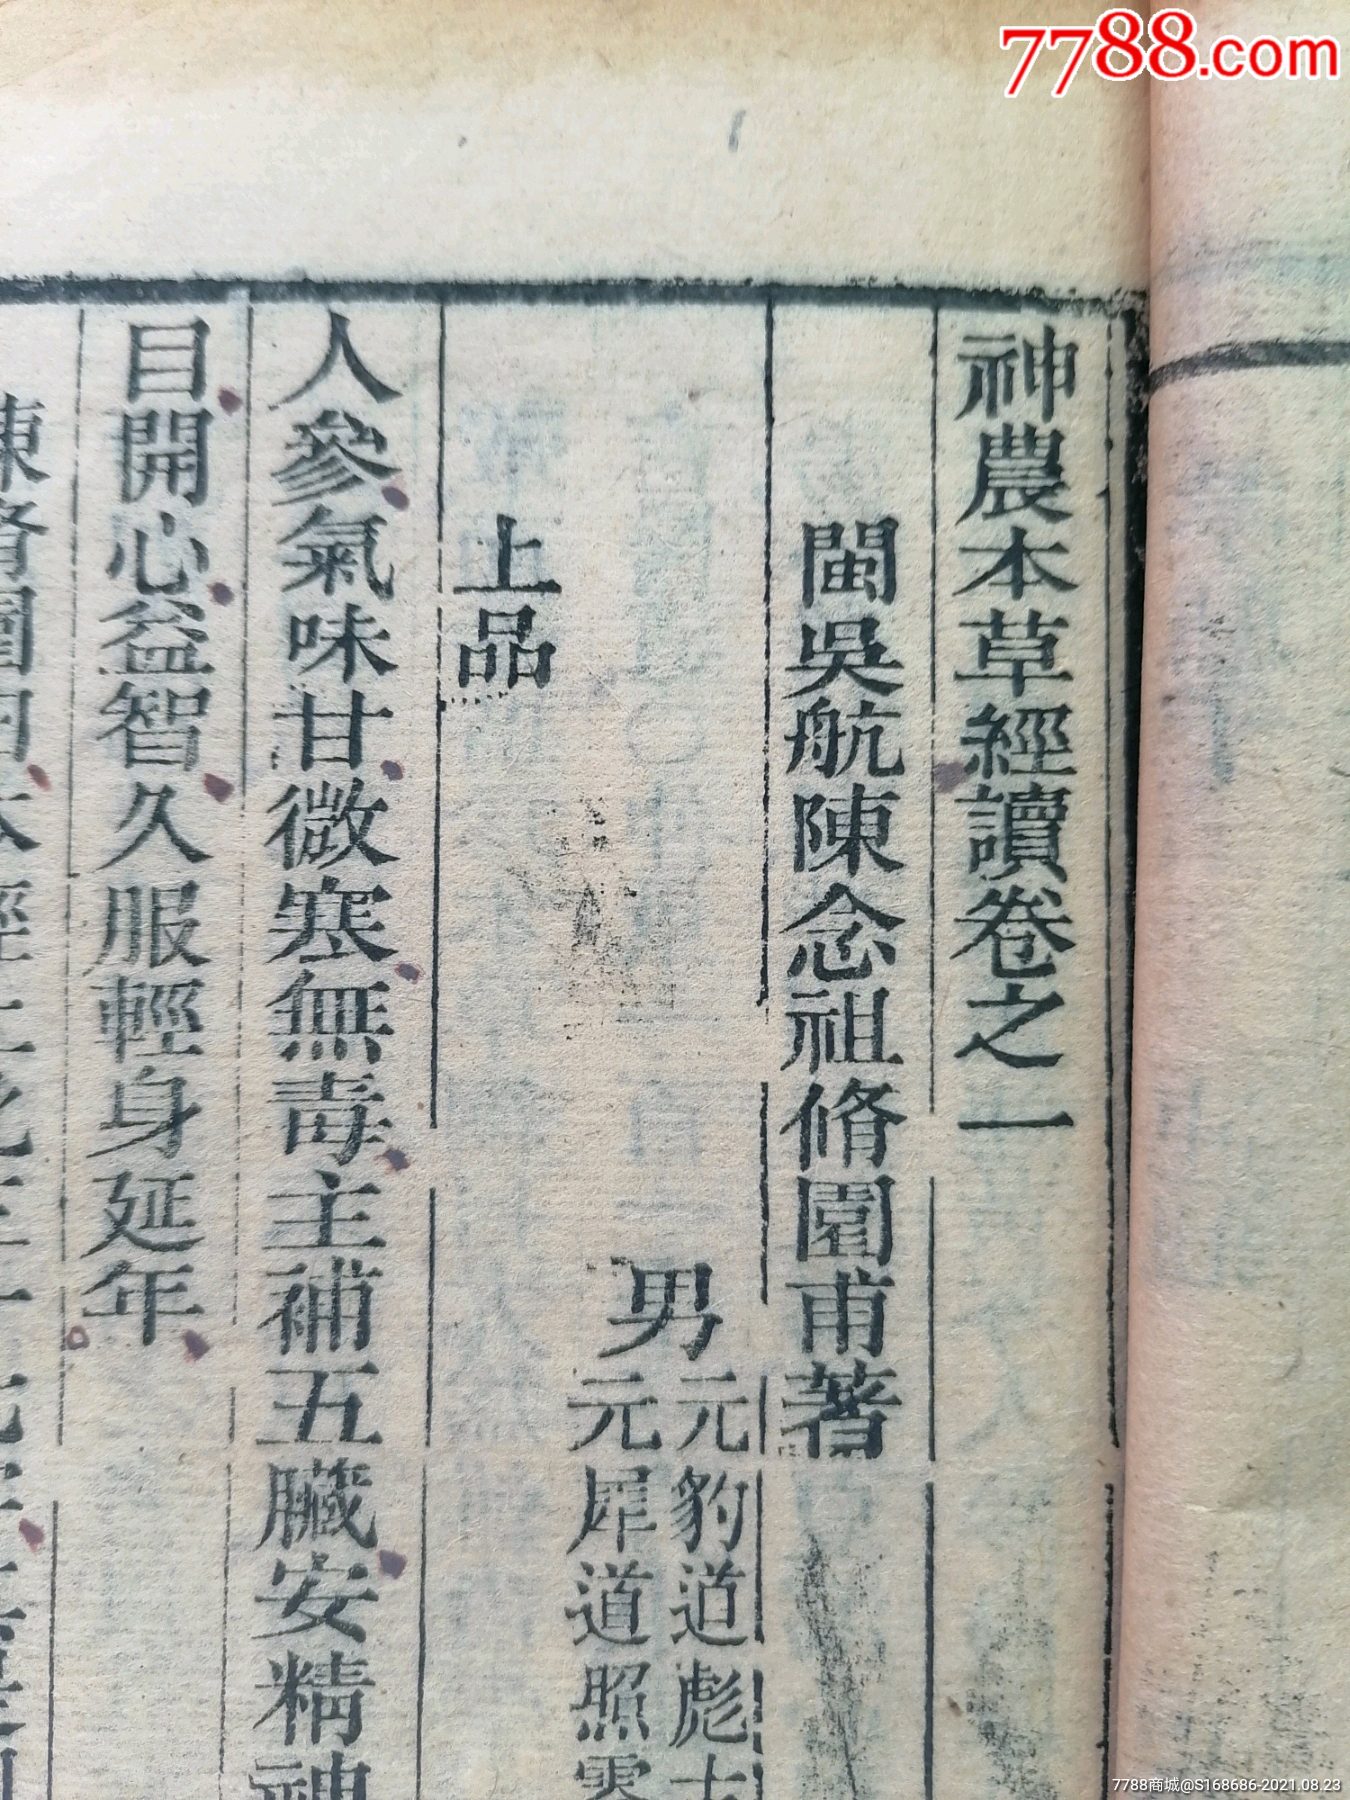 7788.com
神農本草經讀卷之一
閩吳航陳念祖脩園甫著
男
元豹道彪
元犀道照
上品
人參氣味甘微寒無毒主補五臟安精神
目開心益智久服輕身延年
陳脩園曰本經
7788商城@S168686-2021.08.23